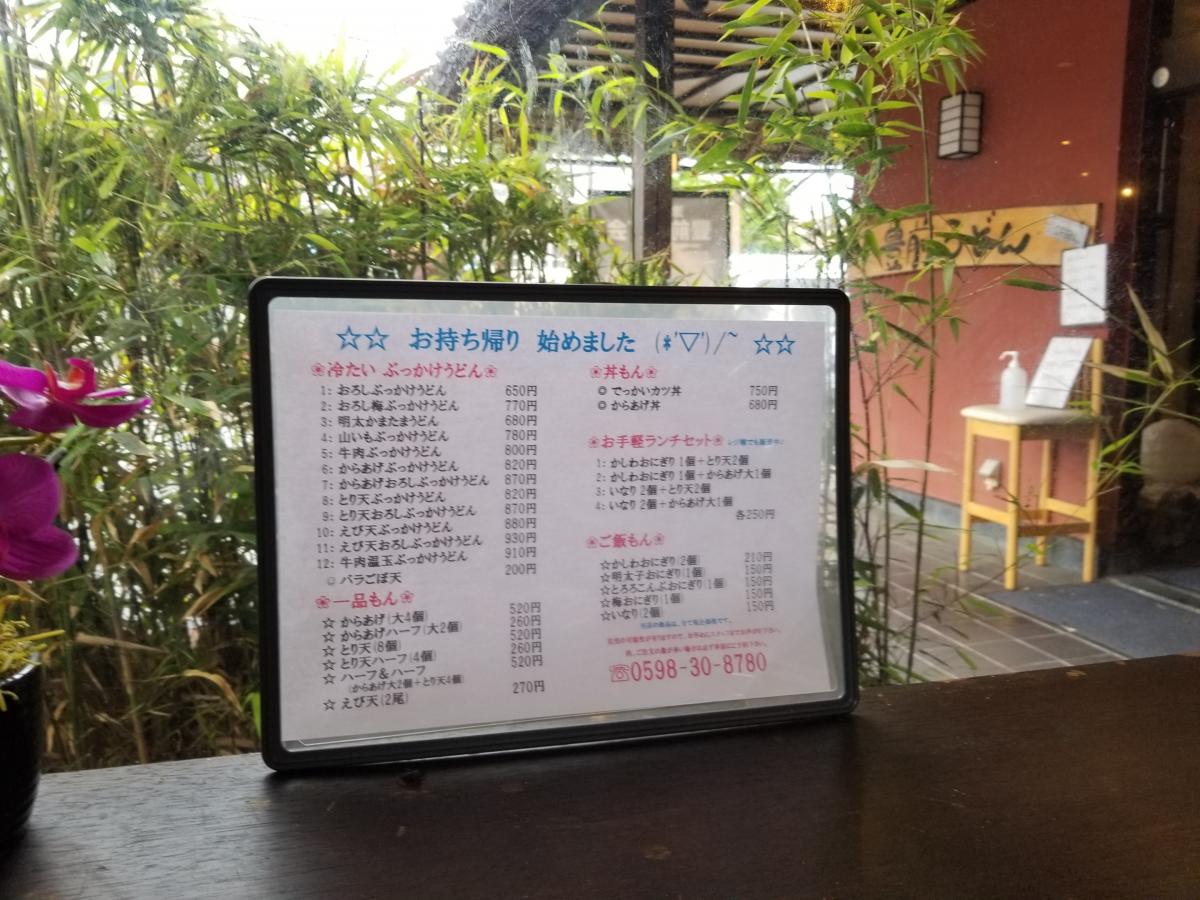 ☆☆ お持ち帰り 始めました (*'▽')/~ ☆☆
❀冷たい ぶっかけうどん❀
1: おろしぶっかけうどん 650円
2: おろし梅ぶっかけうどん 770円
3: 明太かまたまうどん 680円
4: 山いもぶっかけうどん 780円
5: 牛肉ぶっかけうどん 800円
6: からあげぶっかけうどん 820円
7: からあげおろしぶっかけうどん 870円
8: とり天ぶっかけうどん 820円
9: とり天おろしぶっかけうどん 870円
10: えび天ぶっかけうどん 880円
11: えび天おろしぶっかけうどん 930円
12: 牛肉温玉ぶっかけうどん 910円
☺ バラごぼ天 200円
❀一品もん❀
☆ からあげ(大4個) 520円
☆ からあげハーフ(大2個) 260円
☆ とり天(8個) 520円
☆ とり天ハーフ(4個) 260円
☆ ハーフ&ハーフ 520円
(からあげ大2個+とり天4個)
☆ えび天(2尾) 270円
❀丼もん❀
◎ でっかいカツ丼 750円
◎ からあげ丼 680円
❀お手軽ランチセット❀ レジ横でも販売中♪
1: かしわおにぎり1個+とり天2個
2: かしわおにぎり1個+からあげ大1個
3: いなり2個+とり天2個
4: いなり2個+からあげ大1個
各250円
❀ご飯もん❀
☆かしわおにぎり(2個) 210円
☆明太子おにぎり(1個) 150円
☆とろろこんぶおにぎり(1個) 150円
☆梅おにぎり(1個) 150円
☆いなり(2個) 150円
☏0598-30-8780
うどん